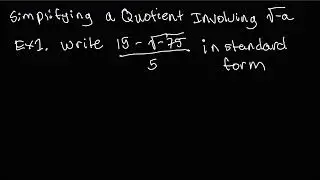 Simplifying a Quotient Involving √-a
Ex1. Write (15 - √-75)/5 in standard form